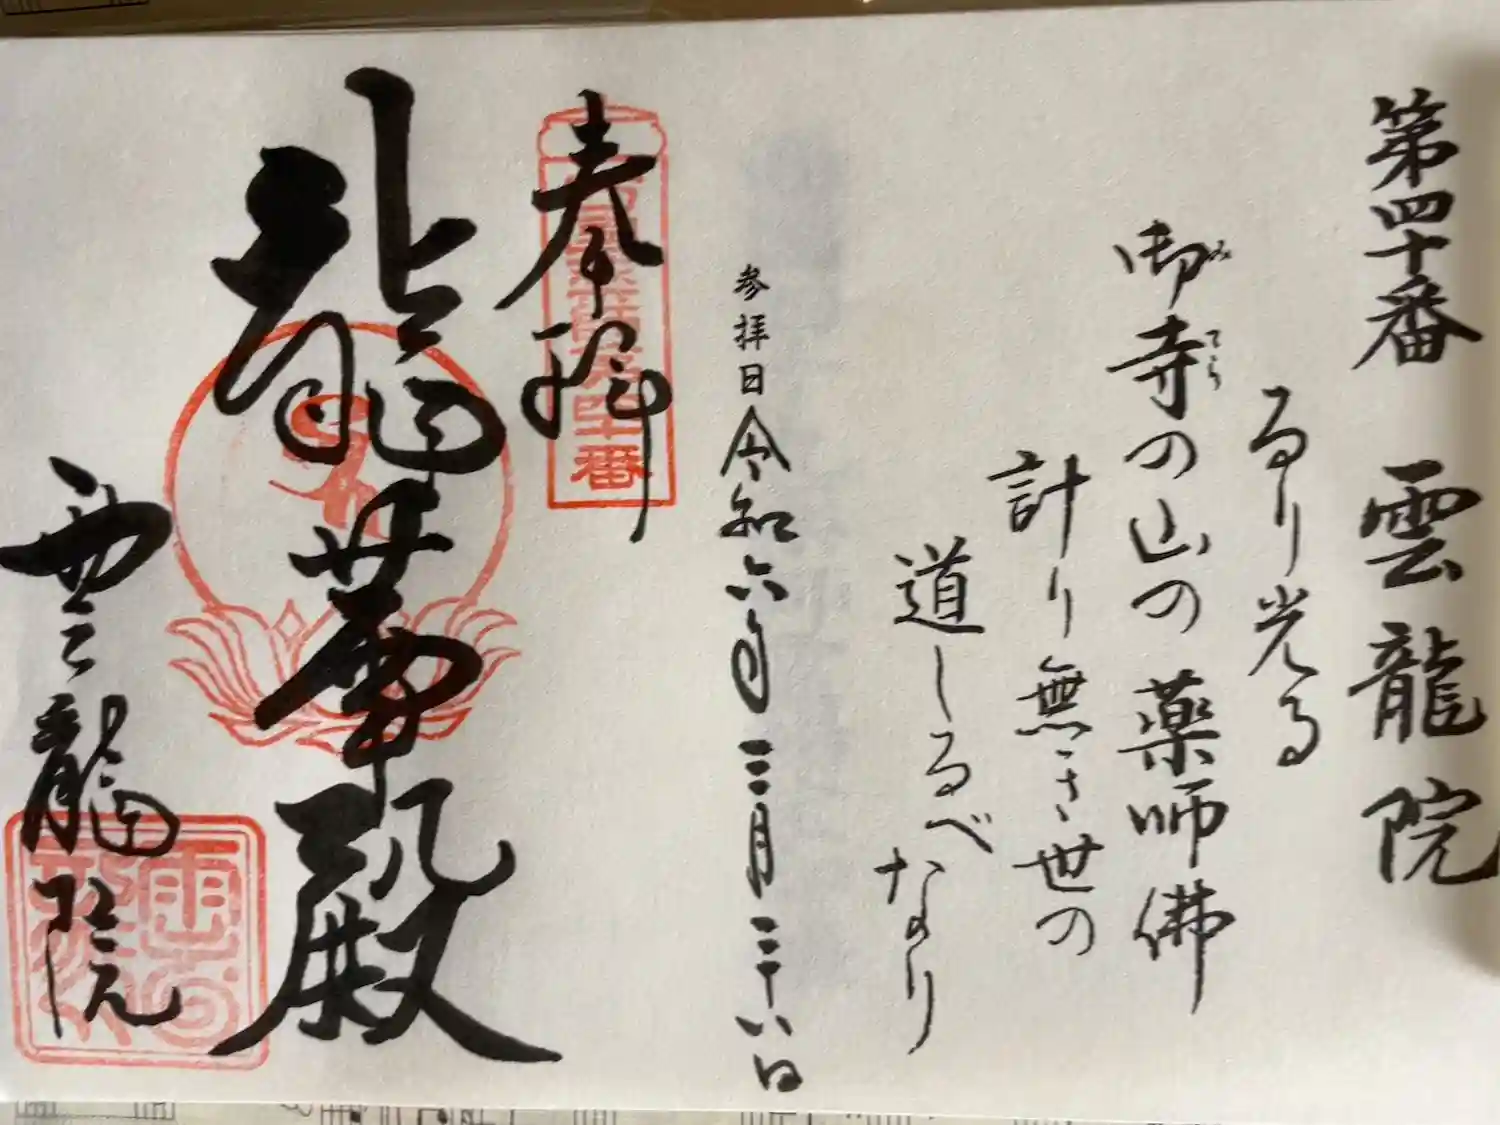 第四十番 雲龍院
るり光る
御寺の山の薬師佛
みてら
計り無き世の
道しるべなり
参拝日令和六年三月二十八日
奉拝
西国薬師第四十番
龍華殿
雲龍院